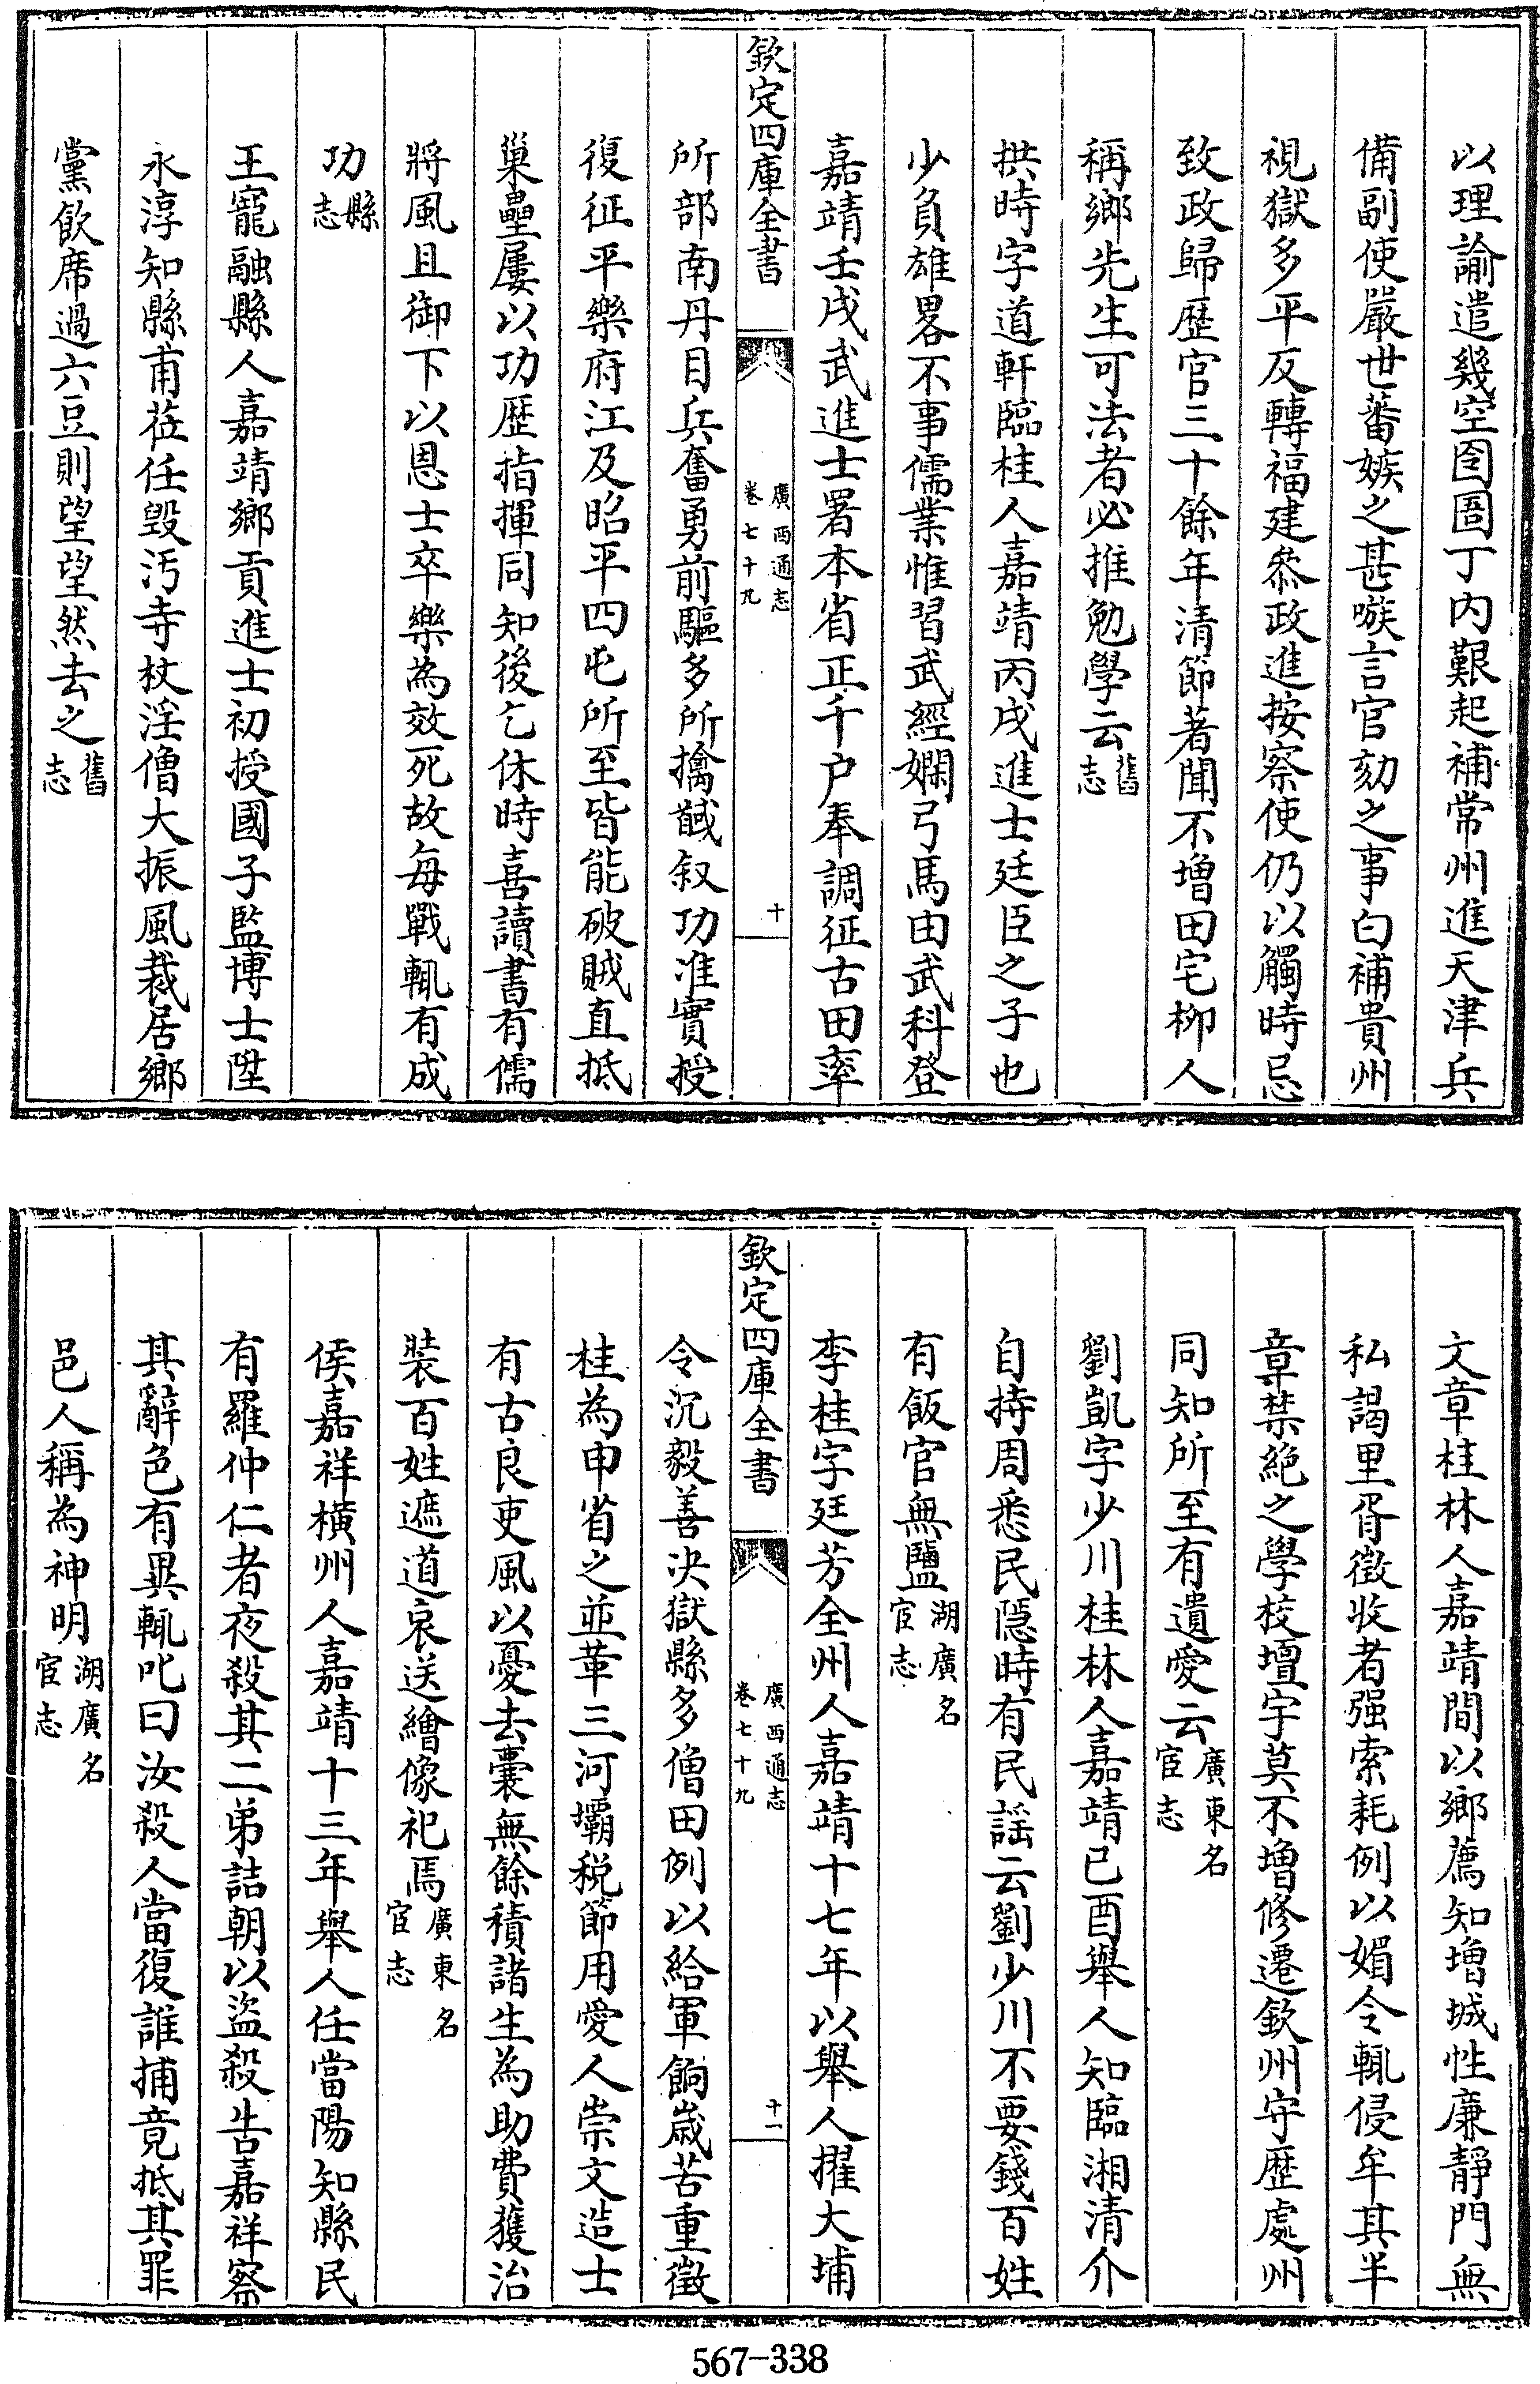 以理諭遣幾空囹圄丁內艱起補常州進天津兵
備副使嚴世蕃嫉之甚嗾言官劾之事白補貴州
視獄多平反轉福建叅政進按察使仍以觸時忌
致政歸歴官三十餘年清節著聞不增田宅柳人
稱鄉先生可法者必推勉學云舊志
拱時字道軒臨桂人嘉靖丙戌進士廷臣之子也
少負雄畧不事儒業惟習武經嫻弓馬由武科登
嘉靖壬戌武進士署本省正千户奉調征古田率
欽定四庫全書
廣西通志
卷七十九
十
所部南丹目兵奮勇前驅多所擒馘叙功准實授
復征平樂府江及昭平四屯所至皆能破賊直抵
巢壘屢以功歴指揮同知後乞休時喜讀書有儒
將風且御下以恩士卒樂為效死故每戰輒有成
功縣志
王寵融縣人嘉靖鄉貢進士初授國子監博士陞
永淳知縣甫莅任毀汚寺杖淫僧大振風裁居鄉
黨飲席過六豆則望望然去之舊志
文章桂林人嘉靖間以鄉薦知增城性廉靜門無
私謁里胥徵收者强索耗例以媚令輒侵牟其半
章禁絕之學校壇宇莫不增修遷欽州守歴處州
同知所至有遺愛云廣東名宦志
劉凱字少川桂林人嘉靖已酉舉人知臨湘清介
自持周悉民隱時有民謡云劉少川不要錢百姓
有飯官無鹽湖廣名宦志
李桂字廷芳全州人嘉靖十七年以舉人擢大埔
欽定四庫全書
廣西通志
卷七十九
十一
令沉毅善决獄縣多僧田例以給軍餉歲苦重徵
桂為申省之並革三河壩税節用愛人崇文造士
有古良吏風以憂去囊無餘積諸生為助費獲治
裝百姓遮道哀送繪像祀焉廣東名宦志
侯嘉祥橫州人嘉靖十三年舉人任當陽知縣民
有羅仲仁者夜殺其二弟詰朝以盜殺告嘉祥察
其辭色有異輒叱曰汝殺人當復誰捕竟抵其罪
邑人稱為神明湖廣名宦志
567-338